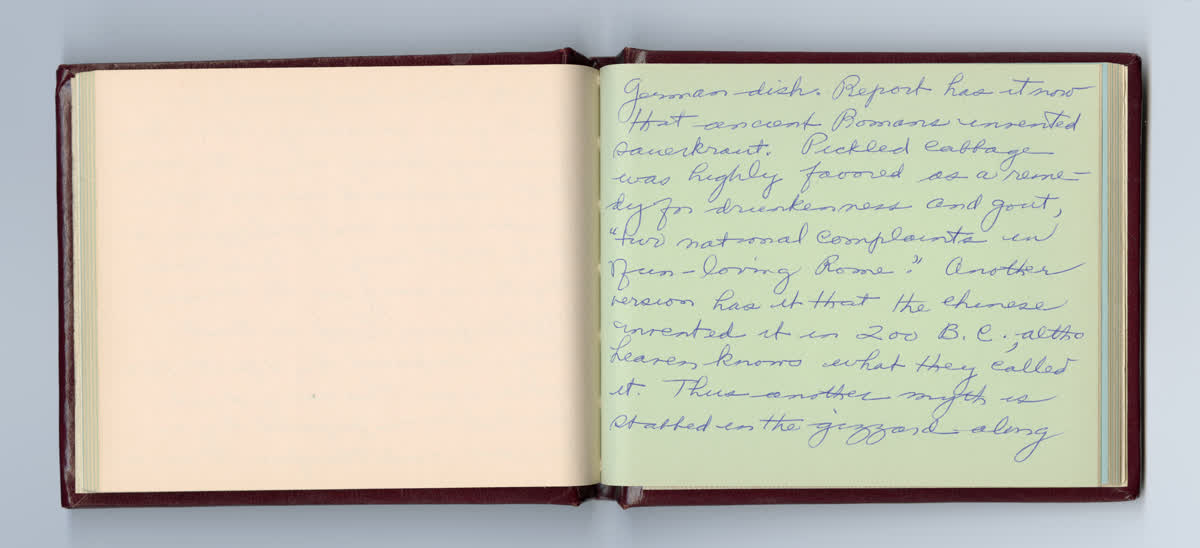 German dish. Report has it now
that ancient Romans invented
sauerkraut. Pickled cabbage
was highly favored as a reme-
dy for drunkenness and gout,
"two national complaints in
fun-loving Rome." Another
version has it that the Chinese
invented it in 200 B.C., altho
heaven knows what they called
it. Thus another myth is
stabbed in the gizzard along